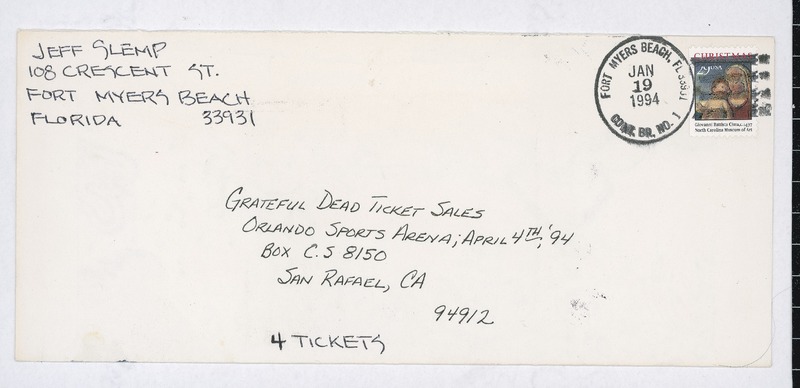 JEFF SLEMP
108 CRESCENT ST.
FORT MYERS BEACH
FLORIDA 33931
FORT MYERS BEACH, FL 33931
JAN
19
1994
CONT. BR. NO. 1
CHRISTMAS
29 USA
Giovanni Battista Cima, c.1497
North Carolina Museum of Art
GRATEFUL DEAD TICKET SALES
ORLANDO SPORTS ARENA; APRIL 4TH, '94
BOX C.S 8150
SAN RAFAEL, CA
94912
4 TICKETS